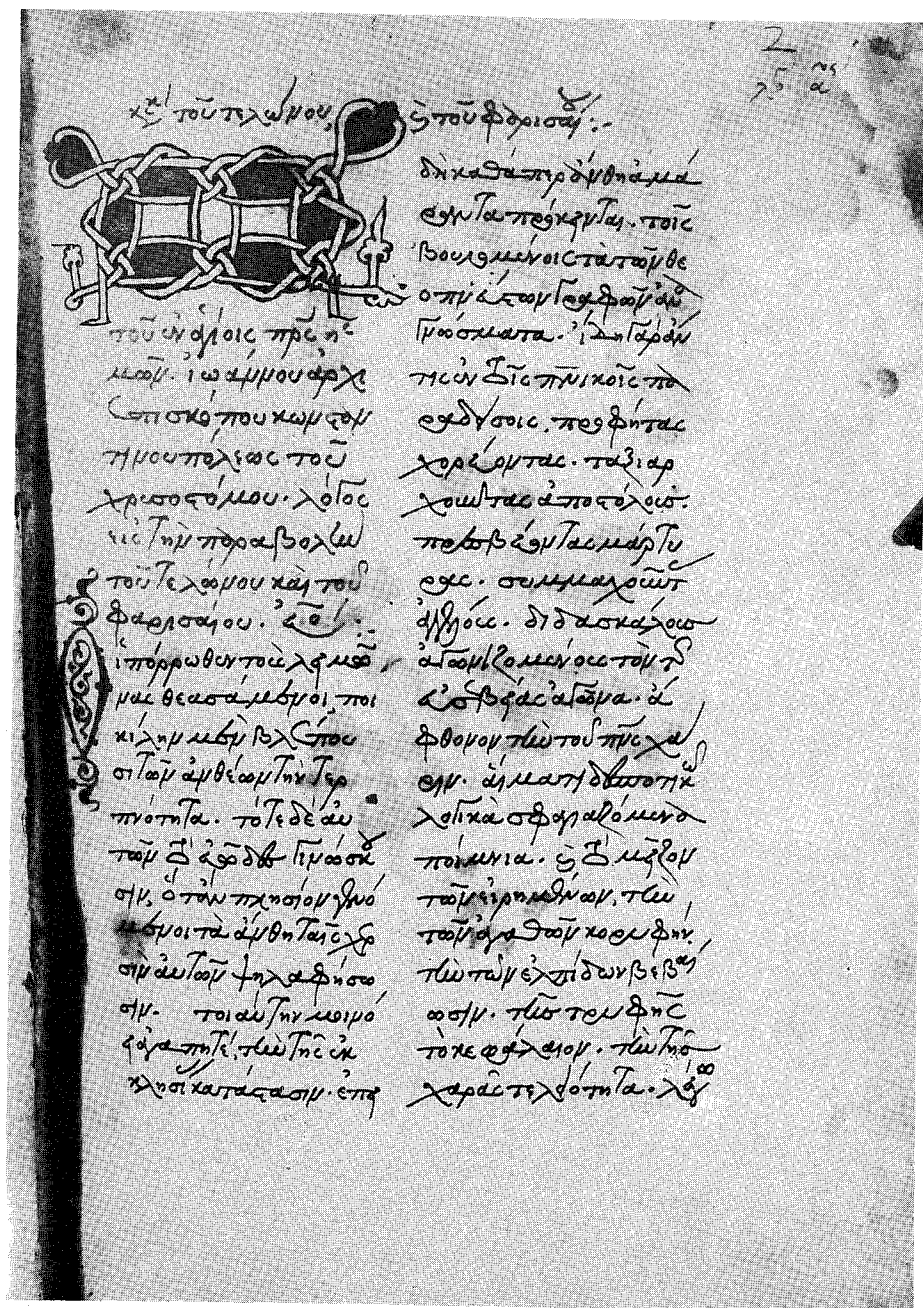 2
κυ τοῦ τελώνου, ς τοῦ φαρισαίου:-
τοῦ ἐν ἁγίοις πρς ἡ
μῶν ἰωάννου ἀρχι
ἐπισκόπου κωνσταν
τινουπόλεως τοῦ
χρυσοστόμου. λόγος
εἰς τὴν παραβολὴν
τοῦ τελώνου καὶ τοῦ
φαρισαίου.
ἱ πόρρωθεν τοὺς λειμῶ
νας θεασάμενοι, ποι
κίλην μὲν βλέπου
σι τῶν ἀνθέων τὴν τερ
πνότητα. τότε δὲ αὐ
τῶν γινώσκου
σιν, ὅταν πλησίον γενό
μενοι τὰ ἄνθη ταῖς χερ
σὶν αὐτῶν ψηλαφήσω
σιν. τοιαύτην μοι νό
ει ἀγαπητέ, τὴν τῆς ἐκ
κλησίας κατάστασιν. ἐπει
δὴ καθάπερ ἄνθη ἀμά
ραντα πρόκεινται. τοῖς
βουλομένοις τὰ τῶν θε
οπνεύστων γραφῶν ἀνα
γνώσματα. ἴδῃ γὰρ ἄν
τις ἐν τοῖς πνικοῖς πα
ραδείσοις, προφήτας
χορεύοντας. ταξιαρ
χοῦντας ἀποστόλους.
πρεσβεύοντας μάρτυ
ρας. συμμαχοῦντας
ἀγγέλους. διδασκάλους
ἀγωνιζομένους τὸν τῆς
εὐσεβείας ἀγῶνα. ἄ
φθονον τὴν τοῦ πνς χά
ριν. αἵματι δεσποτικῷ
λογικὰ σφραγιζόμενα
ποίμνια. ς τὸ μεῖζον
τῶν εἰρημένων, τὴν
τῶν ἀγαθῶν κορυφήν.
τὴν τῶν ἐλπίδων βεβαί
ωσιν. τῆς τρυφῆς
τὸ κεφάλαιον. τὴν τῆς
χαρᾶς τελειότητα. λέγω